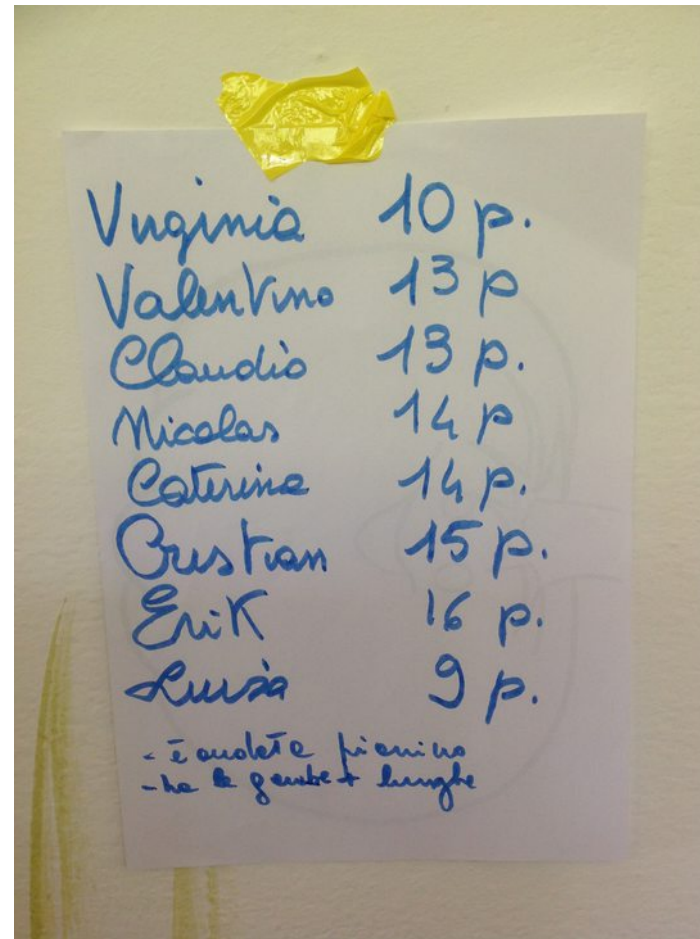 Virginia 10 p.
Valentino 13 p
Claudio 13 p.
Nicolas 14 p
Caterina 14 p.
Cristian 15 p.
Erik 16 p.
Luisa 9 p.
- è andata pianino
- ha le gambe + lunghe